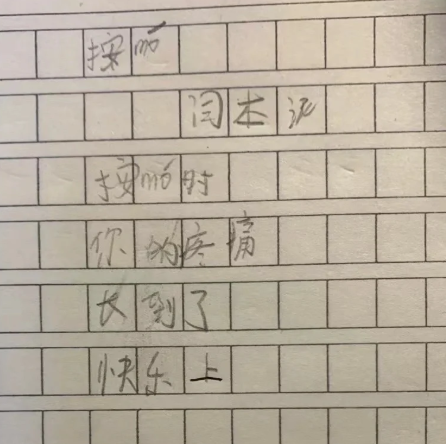 按mó
闫木泥
按mó时
你的疼痛
长到了
快乐上